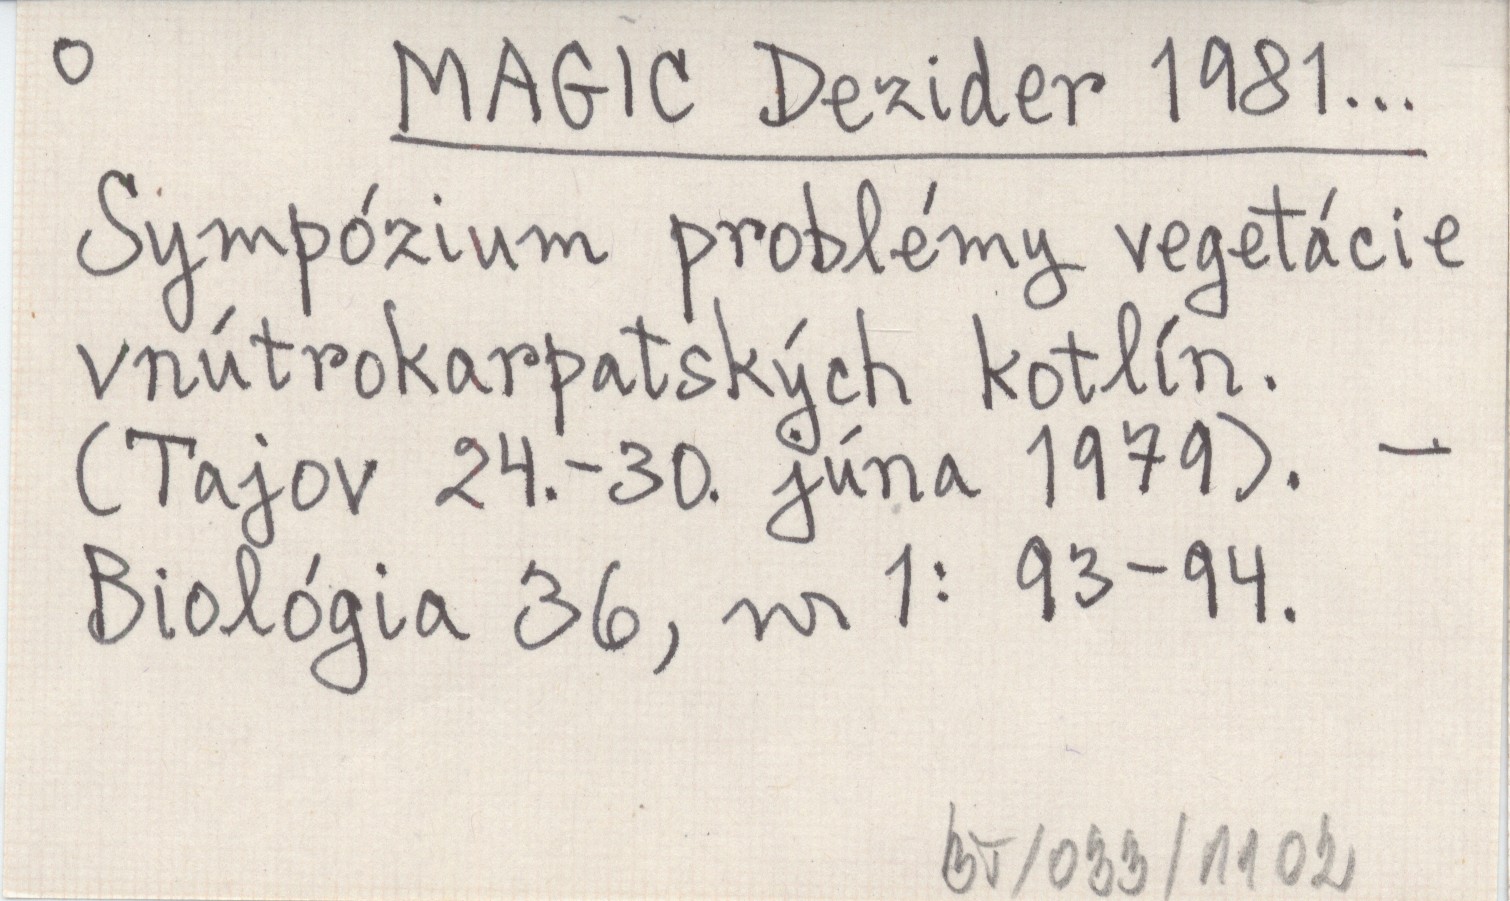 O MAGIC Dezider 1981...
Sympózium problémy vegetácie
vnútrokarpatských kotlín.
(Tajov 24.-30. júna 1979). -
Biológia 36, nr 1: 93-94.
/033/1102